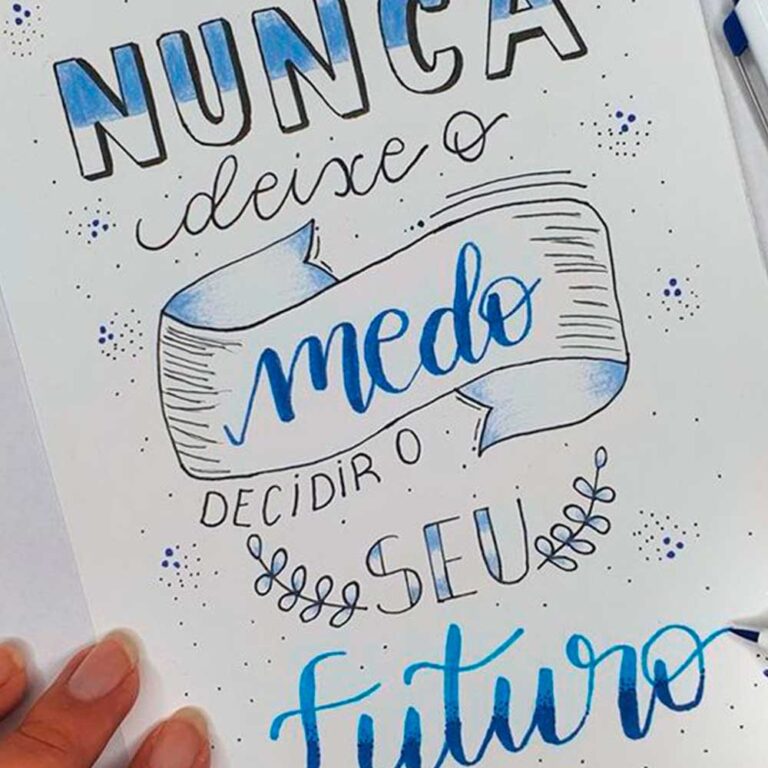 NUNCA
deixe o
medo
DECIDIR O
SEU
Futuro